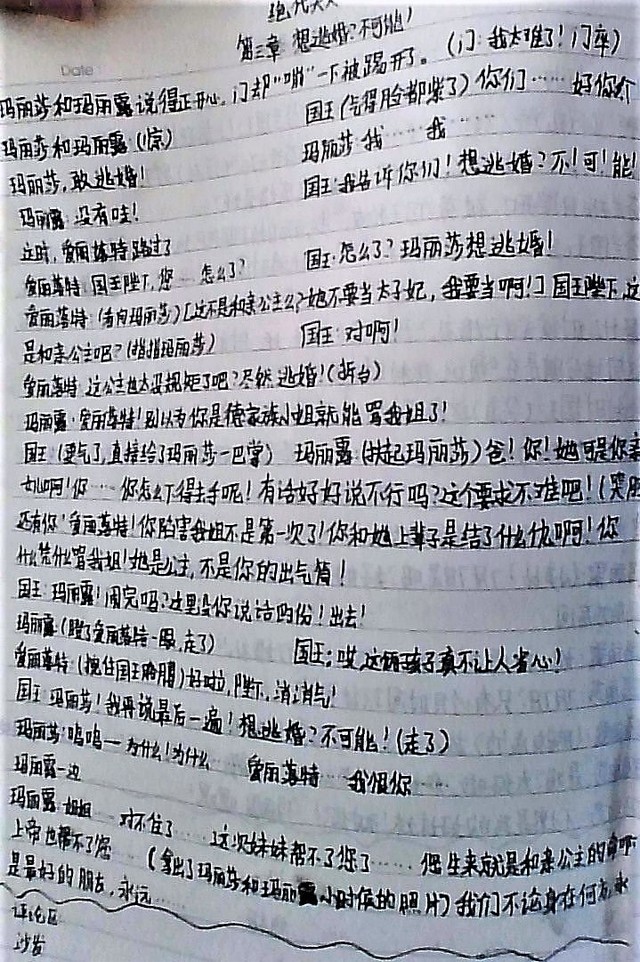 第三章 想逃婚?不可能!
玛丽莎和玛丽露说得正开心,门却“嘣”一下被踢开了。(门:我太难了!门卒)
玛丽莎和玛丽露(惊) 国王(气得脸都紫了)你们……好你个
玛丽莎,敢逃婚! 玛丽莎:我……我
玛丽露:没有哇! 国王:我告诉你们!想逃婚?不!可!能!
这时,爱丽落特路过了
爱丽落特:国王陛下,您……怎么了? 国王:怎么了?玛丽莎想逃婚!
爱丽落特:(看向玛丽莎)[这不是和亲公主么?她不要当太子妃,我要当啊!]国王陛下,这
是和亲公主吧?(指指玛丽莎) 国王:对啊!
爱丽落特:这公主也太没规矩了吧?尽然逃婚!(拆台)
玛丽露:爱丽落特!别以为你是德家族小姐就能骂我姐了!
国王(更气了,直接给了玛丽莎一巴掌) 玛丽露(扶起玛丽莎)爸!你!她可是你亲
女儿啊!你……你怎么下得去手呢!有话好好说不行吗?这个要求不难吧!(哭腔
还有你!爱丽落特!你陷害我姐不是第一次了!你和她上辈子是结了什么仇啊!你
什么凭什么骂我姐!她是公主,不是你的出气筒!
国王:玛丽露!闹完吗?这里没你说话的份!出去!
玛丽露:(瞪了爱丽落特一眼,走了) 国王:哎,这俩孩子真不让人省心!
爱丽落特:(挽住国王胳膊)好啦,陛下,消消气!
国王:玛丽莎!我再说最后一遍!想逃婚?不可能!(走了)
玛丽莎:呜呜——为什么!为什么 爱丽落特……我恨你……
玛丽露一边
玛丽露:姐姐……对不住了……这次妹妹帮不了您了……您生来就是和亲公主的命啊
上帝也帮不了您……(拿出了玛丽莎和玛丽露小时候的照片)我们不论身在何方,永
是最好的朋友,永远……
评论区
沙发